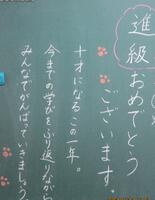 進級おめでとう
ございます。
十才になるこの一年。
今までの学びをふり返りながら
みんなでがんばっていきましょう